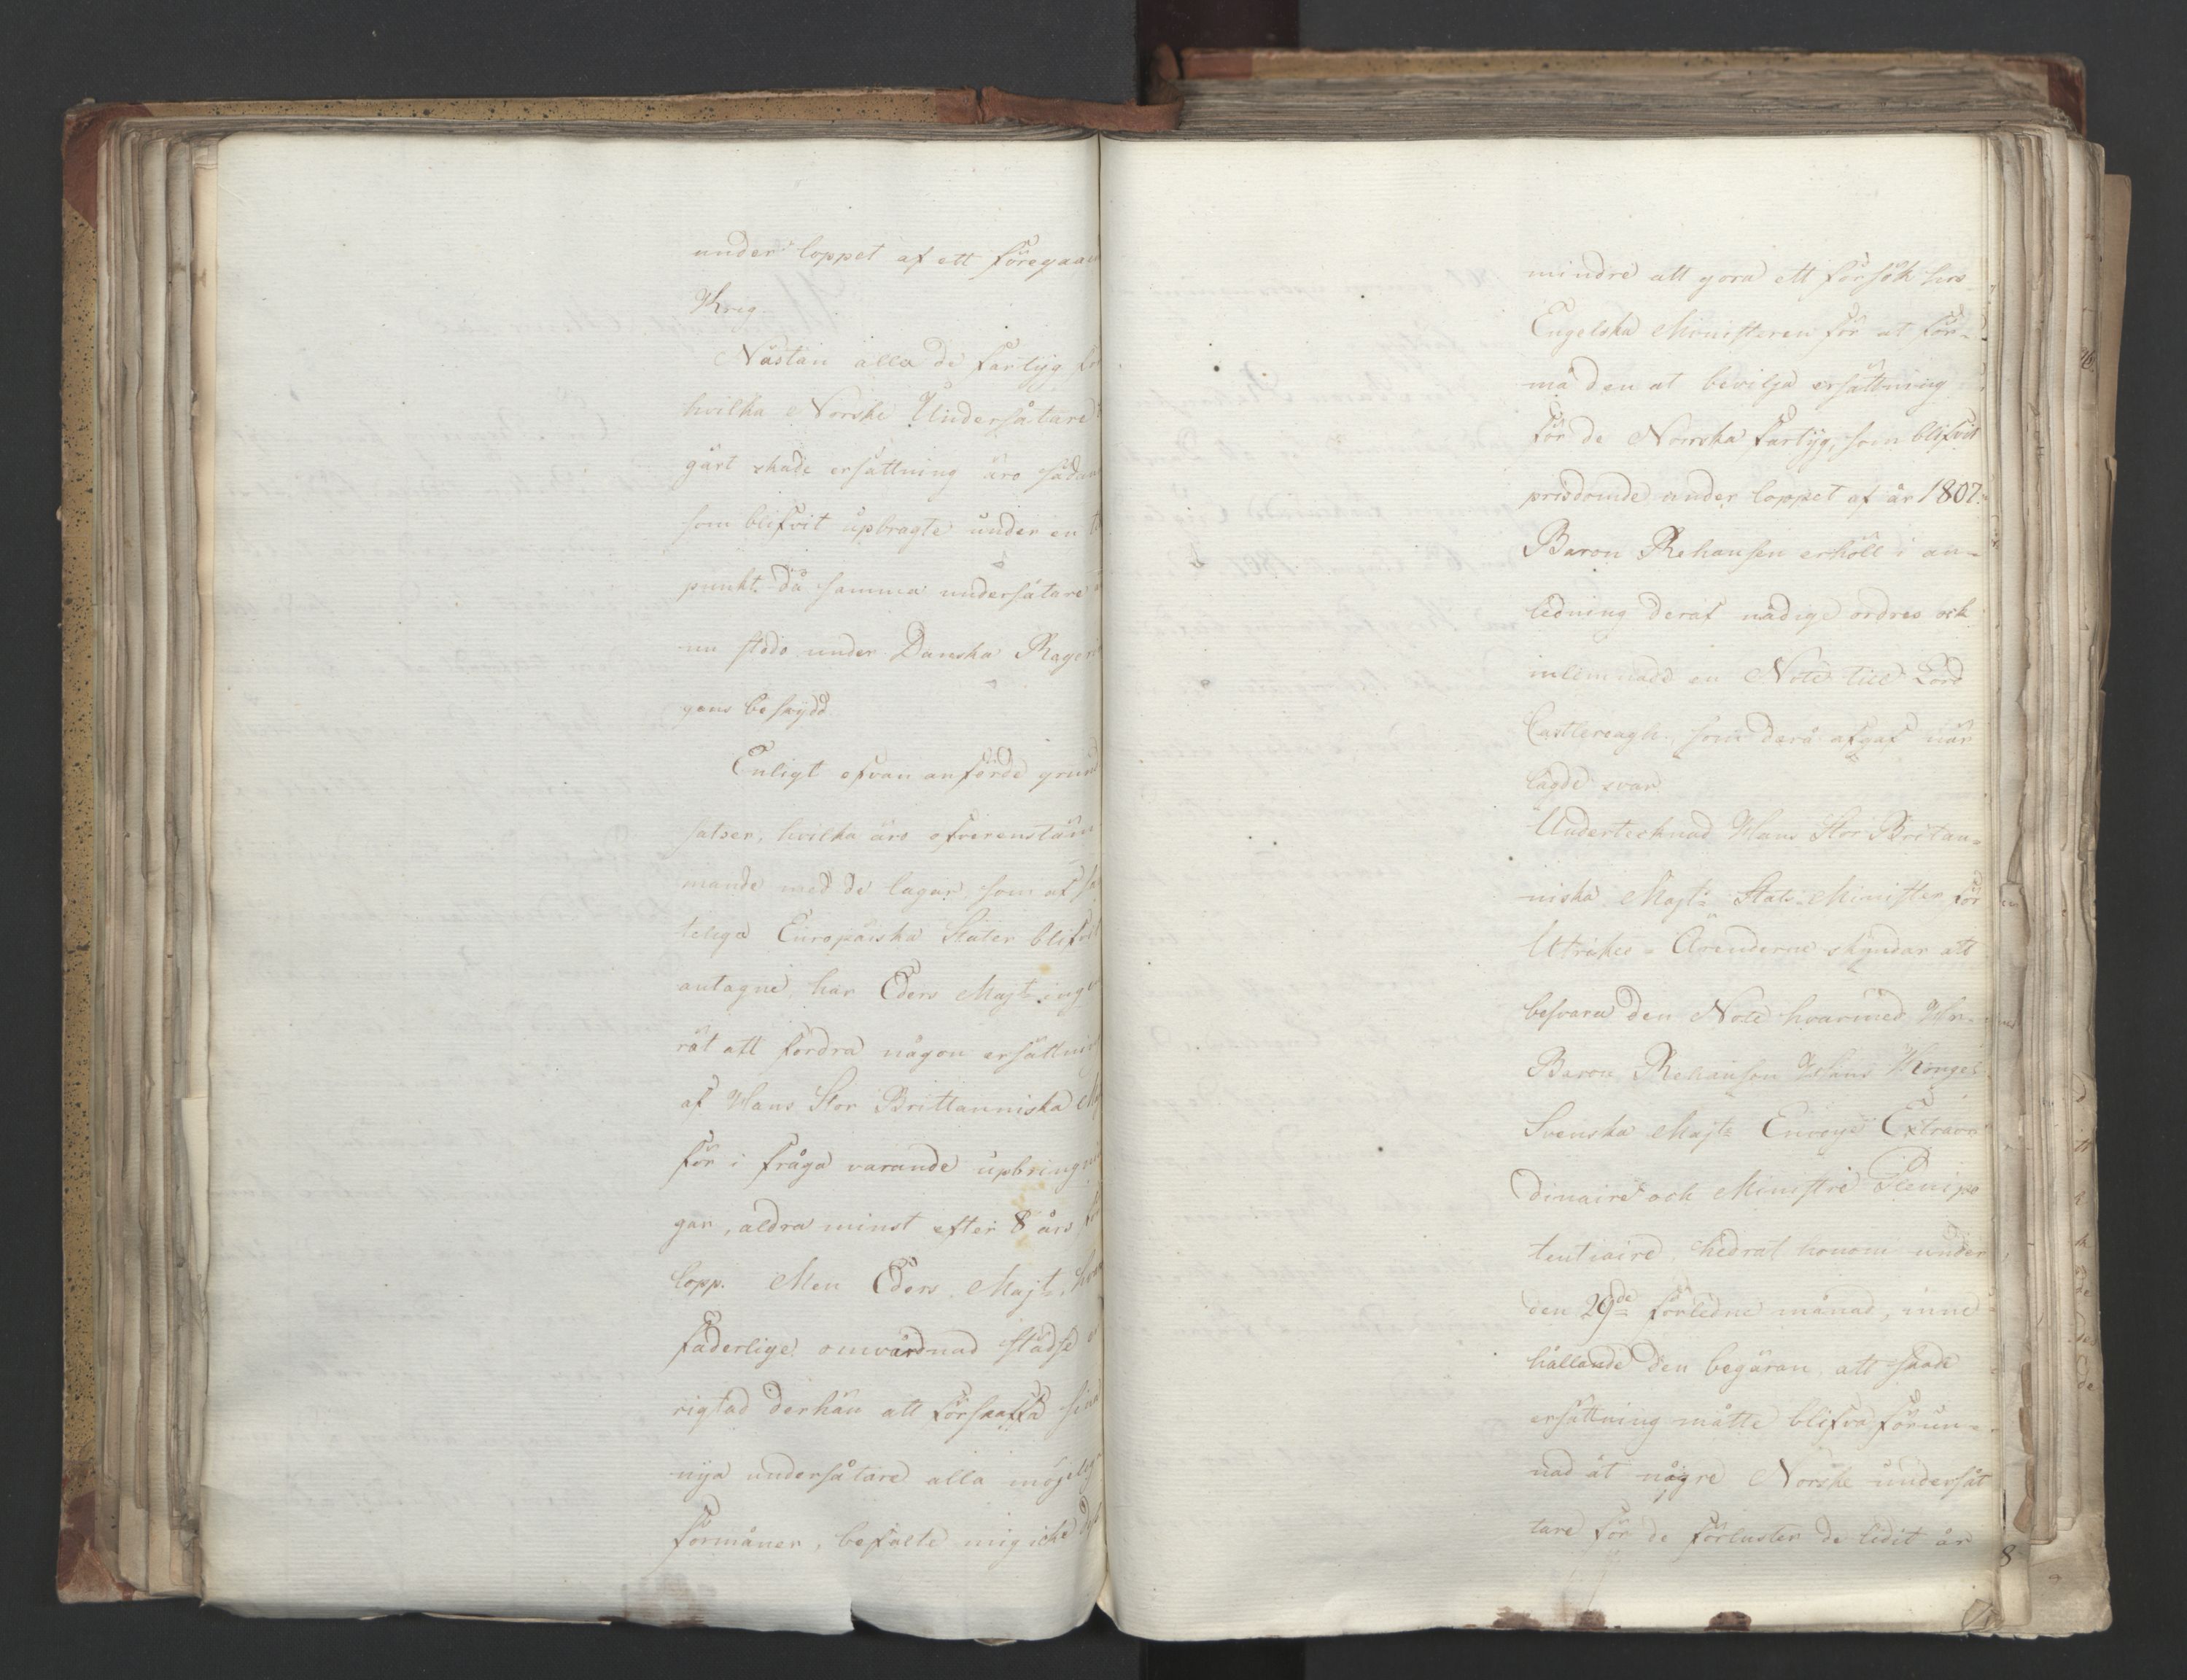 under loppet af ett föregaaen
Krig.
Nästan alla de fartyg fö
hvilka Norske Undersåtare
gärt skade ersättning äro sådan
som blifvit upbragte under en ti
punkt då samma undersåtare
nu stodo under Danska Rageri
gens beskydd.
Enligt ofvan anförde grund
satser, hvilka äro öfverenstäm
mande med de lagar, som af sa
telega Europäiska Stater blifvit
antagne, har Eders Majt: inge
rät att fordra någon ersättnin
af Hans Stor Brittanniska Maj
för i fråga varande upbringni
gar, aldra minst efter 8 års för
lopp. Men Eders Majt:, hvars
faderlige omvårdnad städse
rigtad derhän att förskaffa sina
nya undersåtare alla möjelig
förmåner, befalte mig icke dest
mindre att göra ett försök hos
Engelska Ministeren för at för-
må den at bevilja ersättning
för de Norrska fartyg, som blifvit
prisdömde under loppet af år 1807.
Baron Rehausen erhöll i an-
ledning deraf nådige ordres och
inlemnade en Note till Lord
Castlereagh, som derå afgaf när
lagde svar.
Undertecknad Hans Stor Britan-
niska Majts Stats-Minister för
Utrikes-Ärenderne skyndar att
besvara den Note hvarmed Hr
Baron Rehausen Hans Konges
Svenska Majts Envoyé Extraor
dinaire och Ministre Plenipo
tentiaire, hedrat honom under
den 29de förledne månad, inne
hållande den begäran, att skade
ersättning måtte blifva förun-
nad åt någre Norske undersåt
tare för de förluster de lidit år
8